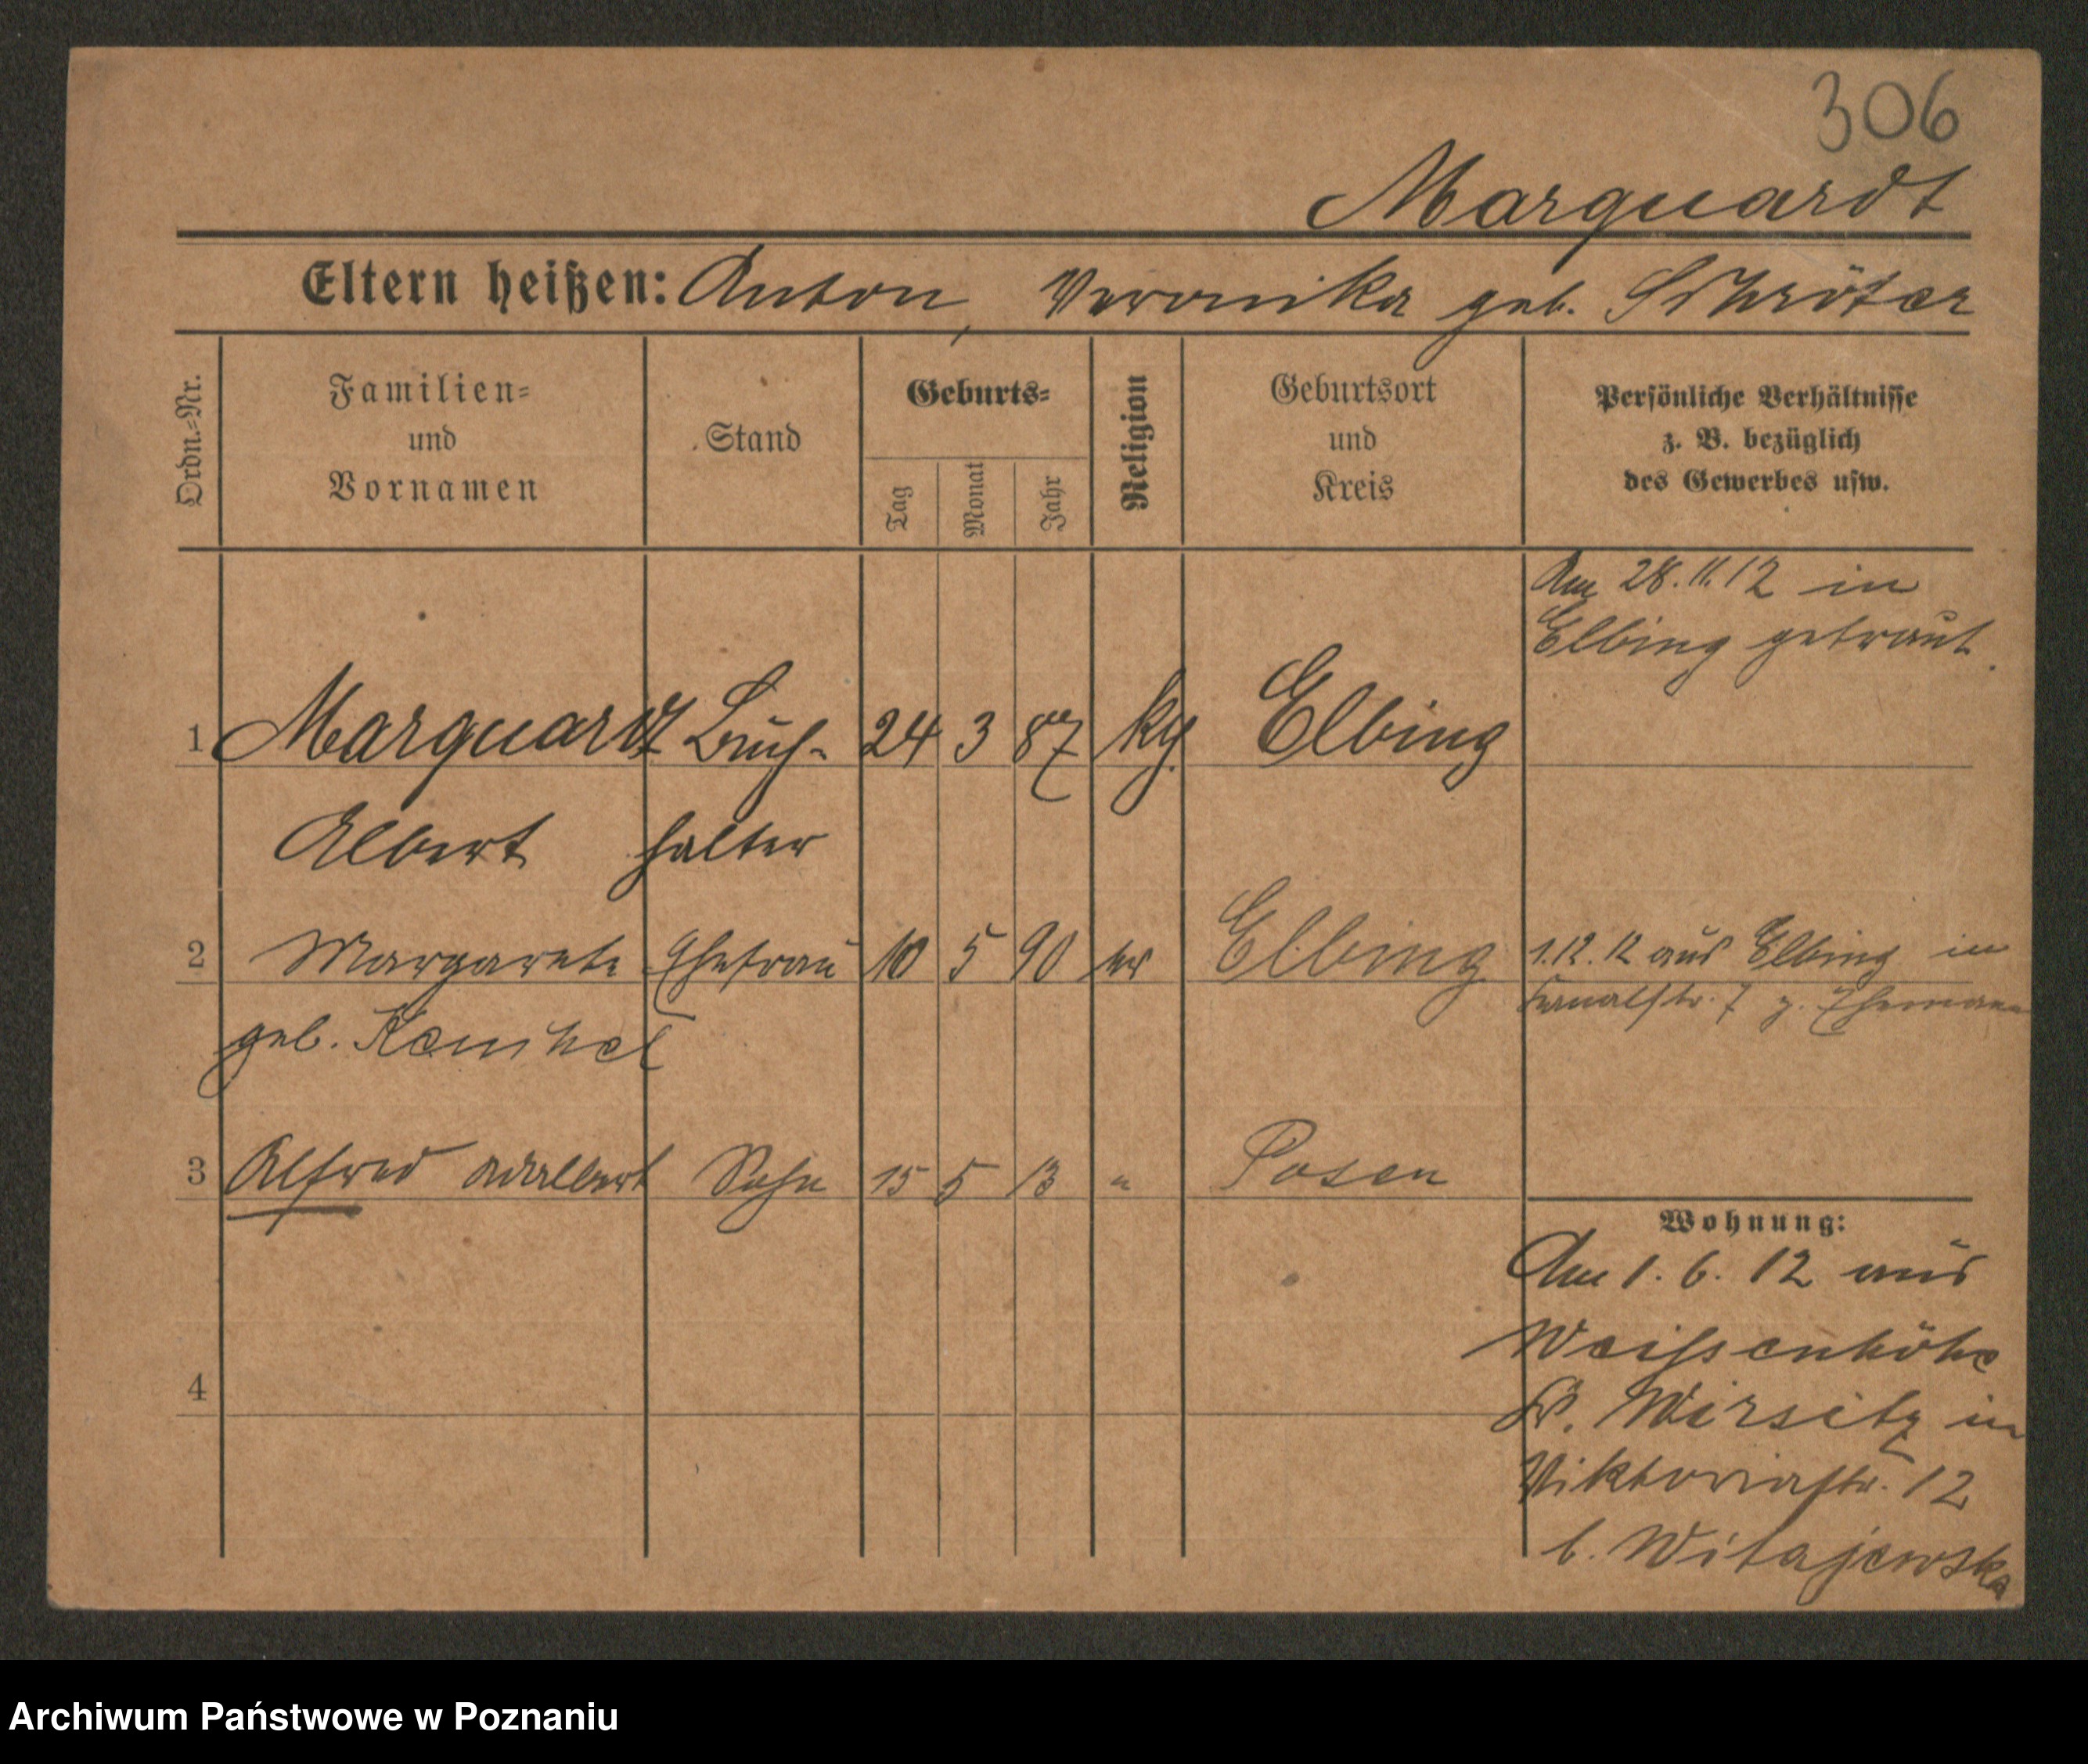 306
Marquardt
Eltern heißen: Anton, Veronika geb. Schröter
Ordn.-Nr.
Familien-
und
Vornamen
Stand
Geburts-
Tag
Monat
Jahr
Religion
Geburtsort
und
Kreis
Persönliche Verhältnisse
z. B. bezüglich
des Gewerbes usw.
Am 28.11.12 in
Elbing getraut.
1 Marquardt Buch- 24 3 87 Elbing
Albert halter
2 Margarete Ehefrau 10 5 90 Elbing 1.12.12 aus Elbing in
Kanalstr. 7 z. Ehemann
geb.
3 Alfred Adalbert Sohn 15 5 13 " Posen
Wohnung:
Am 1.6.12 aus
Weissenhöhe
Kr. Wirsitz in
4
Viktoriastr. 12
b. Witajewska
Archiwum Państwowe w Poznaniu